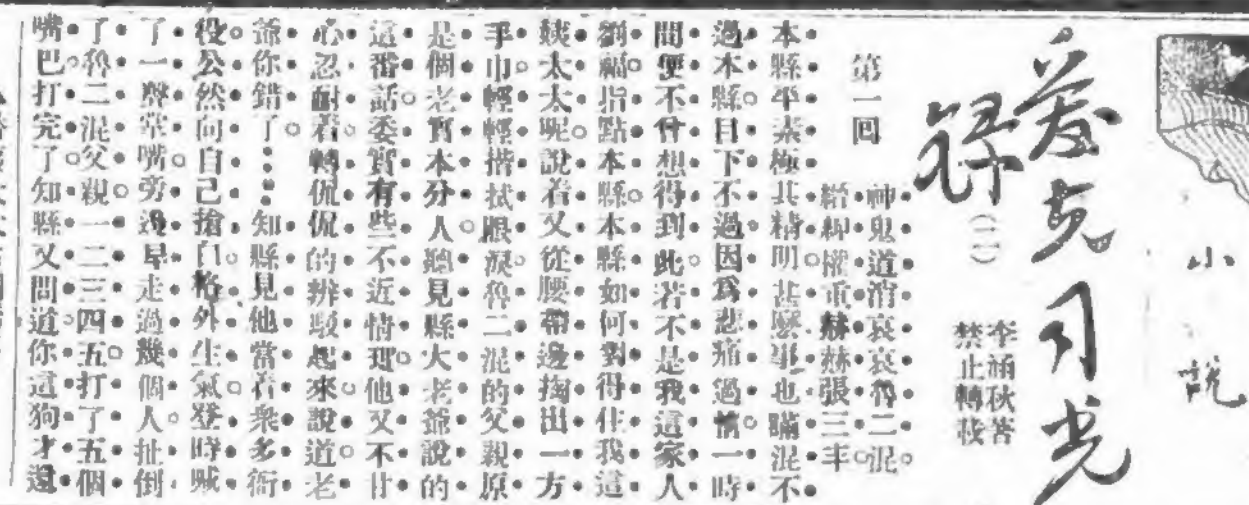 小說
愛克司光錄
(二)
李涵秋著
禁止轉載
第一回
神鬼道消哀哀魯二混
縉紳權重赫赫張三丰
本縣平素極其精明甚麼事也瞞混不
過本縣目下不過因爲悲痛過情一時
間便不曾想得到此若不是我這家人
劉福指點本縣本縣如何對得住我這
姨太太呢說着又從腰帶邊掏出一方
手巾輕輕揩拭眼淚魯二混的父親原
是個老實本分人聽見縣大老爺說的
這番話委實有些不近情理他又不甘
心忍耐着轉侃侃的辨駁起來說道老
爺你錯了……知縣見他當着衆多衙
役公然向自己搶白格外生氣登時喊
了一聲掌嘴旁邊早走過幾個人扯倒
了魯二混父親一二三四五打了五個
嘴巴打完了知縣又問道你這狗才還